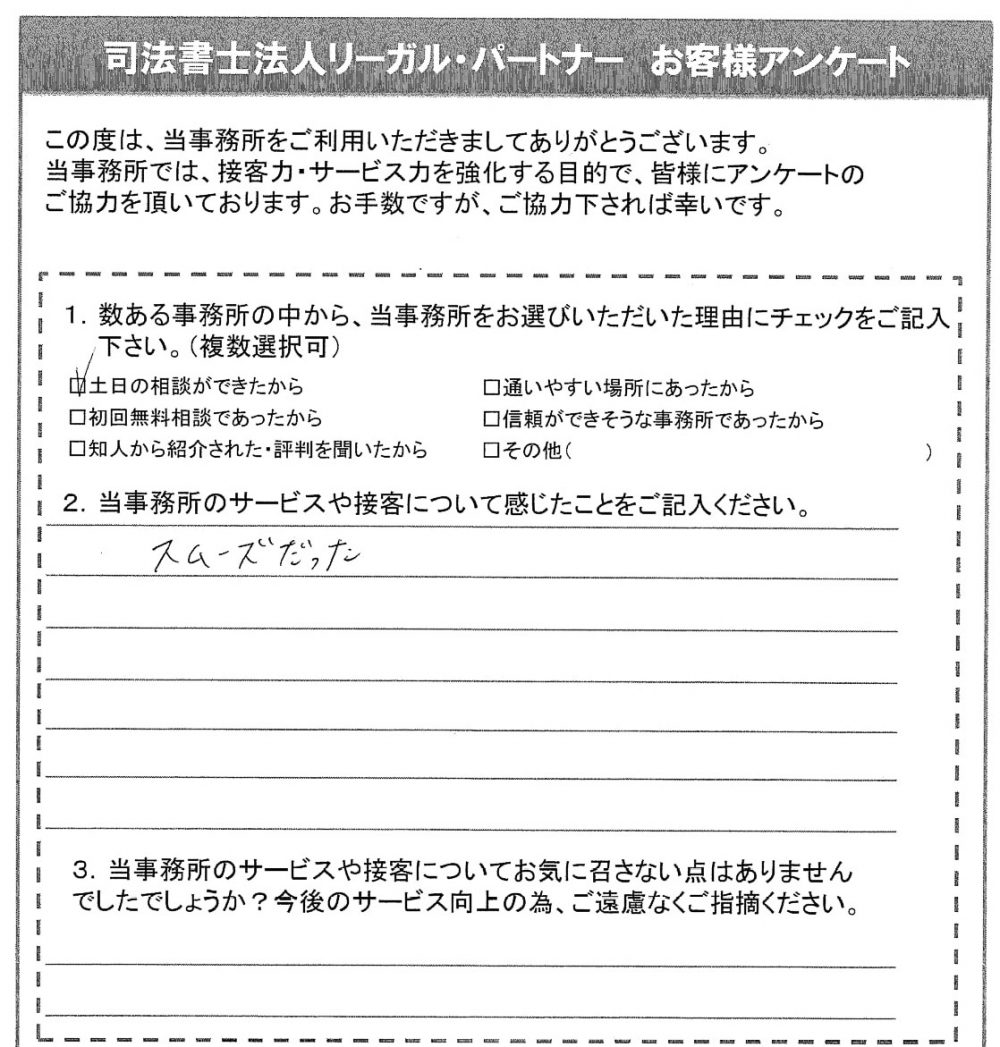 司法書士法人リーガル・パートナー お客様アンケート
この度は、当事務所をご利用いただきましてありがとうございます。
当事務所では、接客力・サービス力を強化する目的で、皆様にアンケートの
ご協力を頂いております。お手数ですが、ご協力下されば幸いです。
1. 数ある事務所の中から、当事務所をお選びいただいた理由にチェックをご記入
下さい。(複数選択可)
☑土日の相談ができたから □通いやすい場所にあったから
□初回無料相談であったから □信頼ができそうな事務所であったから
□知人から紹介された・評判を聞いたから □その他( )
2. 当事務所のサービスや接客について感じたことをご記入ください。
スムーズだった
3. 当事務所のサービスや接客についてお気に召さない点はありません
でしたでしょうか?今後のサービス向上の為、ご遠慮なくご指摘ください。